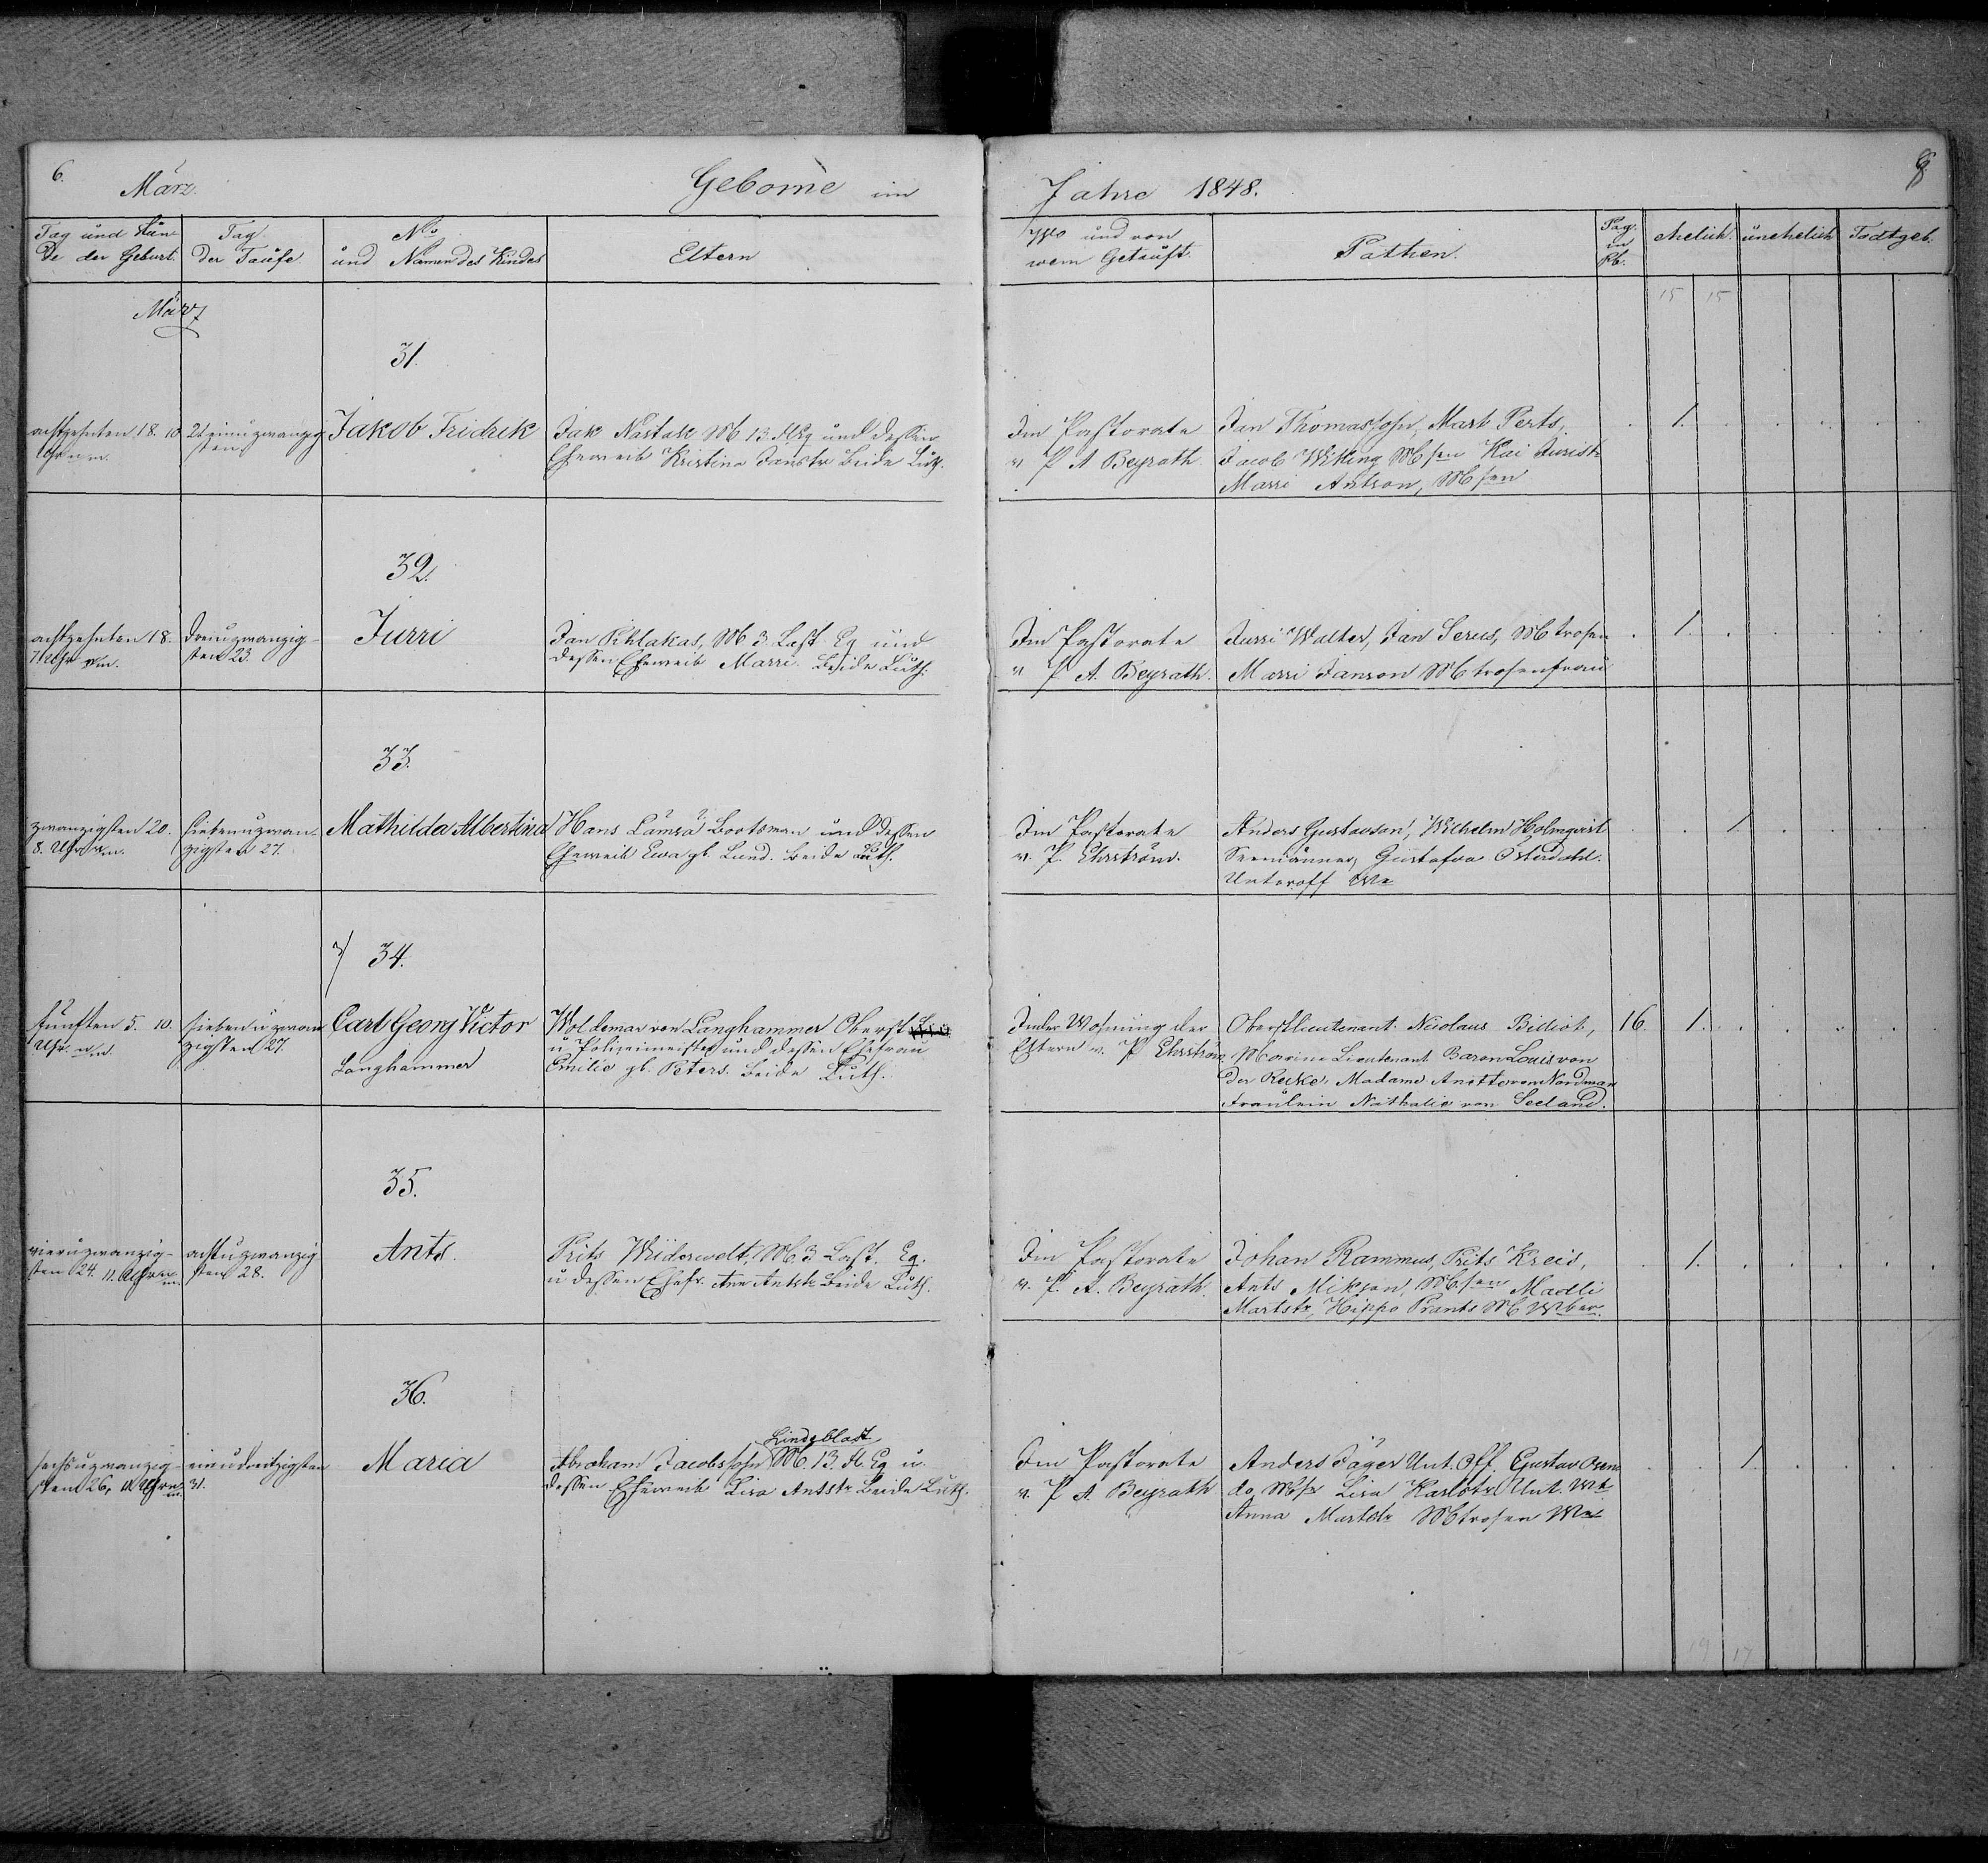 6.
März.
Geborne im
Jahre 1848.
8
Tag und Stun-
de der Geburt.
Tag
der Taufe
No
und Namen des Kindes
Eltern
Wo und von
wem Getauft.
Pathen.
Pag.
in
Kb.
ehelich.
unehelich
Todtgeb.
15 15
März
31.
achtzehnten 18. 10
Uhr
21 einuzwanzig
sten
Jakob Fridrik
Jak Nastak M 13. und dessen
Eheweib Kristina Janstr beide Luth.
Im Pastorate
v P A Beyrath.
Jan Thomassohn, Mart Perts,
Jacob Wiking Kai Juristr
Marri Antson,
1.
32.
achtzehnten 18.
7 Uhr
dreiuzwanzig-
sten 23.
Jurri
Jan Pihlakas, M 3. Last Eq und
dessen Eheweib Marri. beide Luth.
Im Pastorate
v P A. Beyrath.
Jurri Walter, Jan Serus, Mtrosen
Marri Janson Mtrosenfrau
1.
33.
zwanzigsten 20.
8. Uhr
siebenuzwan-
zigsten 27.
Mathilda Albertina
Hans Lamsa Bootsman und dessen
Eheweib Ewa gb. Lund. beide Luth.
Im Pastorate
v. P. Ehrström.
Anders Gustavson, Wilhelm Holmqvist
Seemänner, Gustafva Österdahl.
Unteroff We
1.
34.
fünften 5. 10.
Uhr
sieben u zwan
zigsten 27.
Carl Georg Victor
Langhammer
Woldemar von Langhammer Oberst
u Polizeimeister und dessen Ehefrau
Emilie gb. Peters. beide Luth.
In der Wohnung der
Eltern v. P Ehrström
Oberstlieutenant. Nicolaus
Marine Lieutenant Baron Louis von
der Recke, Madame Anette von Nordman
Fräulein Nathalie von Seeland.
16.
1.
35.
vieruzwanzig-
sten 24. 11. Uhr
achtuzwanzig
sten 28.
Ants.
Prits M. 3 Last. Eq.
u dessen Ehefr. Ann Antstr beide Luth.
Im Pastorate
v. P. A. Beyrath.
Johan Rammus, Prits Kreis,
Ants Mikson, Madli
Martstr, Hippo Prants M Wber.
1.
36.
sechsuzwanzig-
sten 26, Uhr
einudreitzigsten
31.
Maria
Lindqblast
Abraham Jacobssohn M. 13. Fl. Eq u.
dessen Eheweib Lisa Antstr beide Luth.
Im Pastorate
v. P A. Beyrath
Anders Jäger Unt. Off. Gustav
do Lisa Karlstr Unt. We
Anna Martstr Mtrosen We
1.
19 17